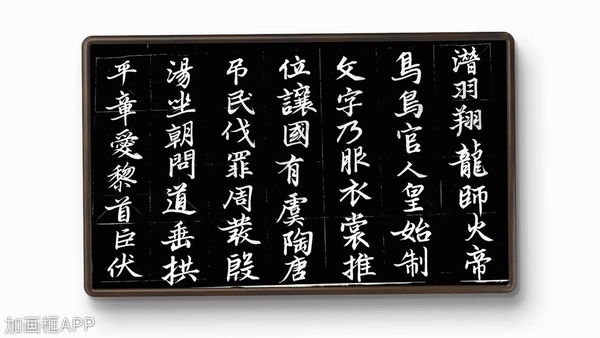 潛羽翔龍師火帝
鳥鳥官人皇始制
文字乃服衣裳推
位讓國有虞陶唐
吊民伐罪周發殷
湯坐朝問道垂拱
平章愛黎首臣伏
加画框APP